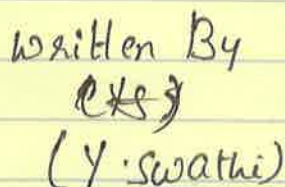 Written By
(Y.Swathi)